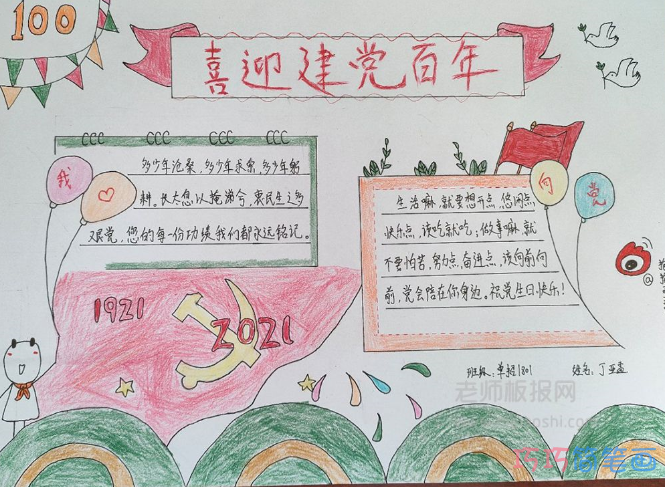 100
喜迎建党百年
CCC CCC CCC CCC
我
向
党
多少年沧桑,多少年求索,多少年躬
耕,长太息以掩涕兮,哀民生之多
艰党,您的每一份功绩我们都永远铭记。
生活嘛,就要想开点,悠闲点
快乐点,该吃就吃;做事嘛,就
不要怕苦,努力点,奋进点,该向前向
前,党会陪在你身边。祝党生日快乐!
1921
2021
@
班级:
姓名:丁
老师板报网
巧巧简笔画